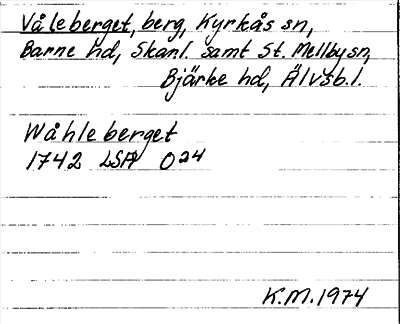 Våleberget, berg, Kyrkås sn,
Barne hd, Skarl. samt St. Mellby sn,
Bjärke hd, Älvsb.l.
Wåhleberget
1742 LSA O24
K.M.1974